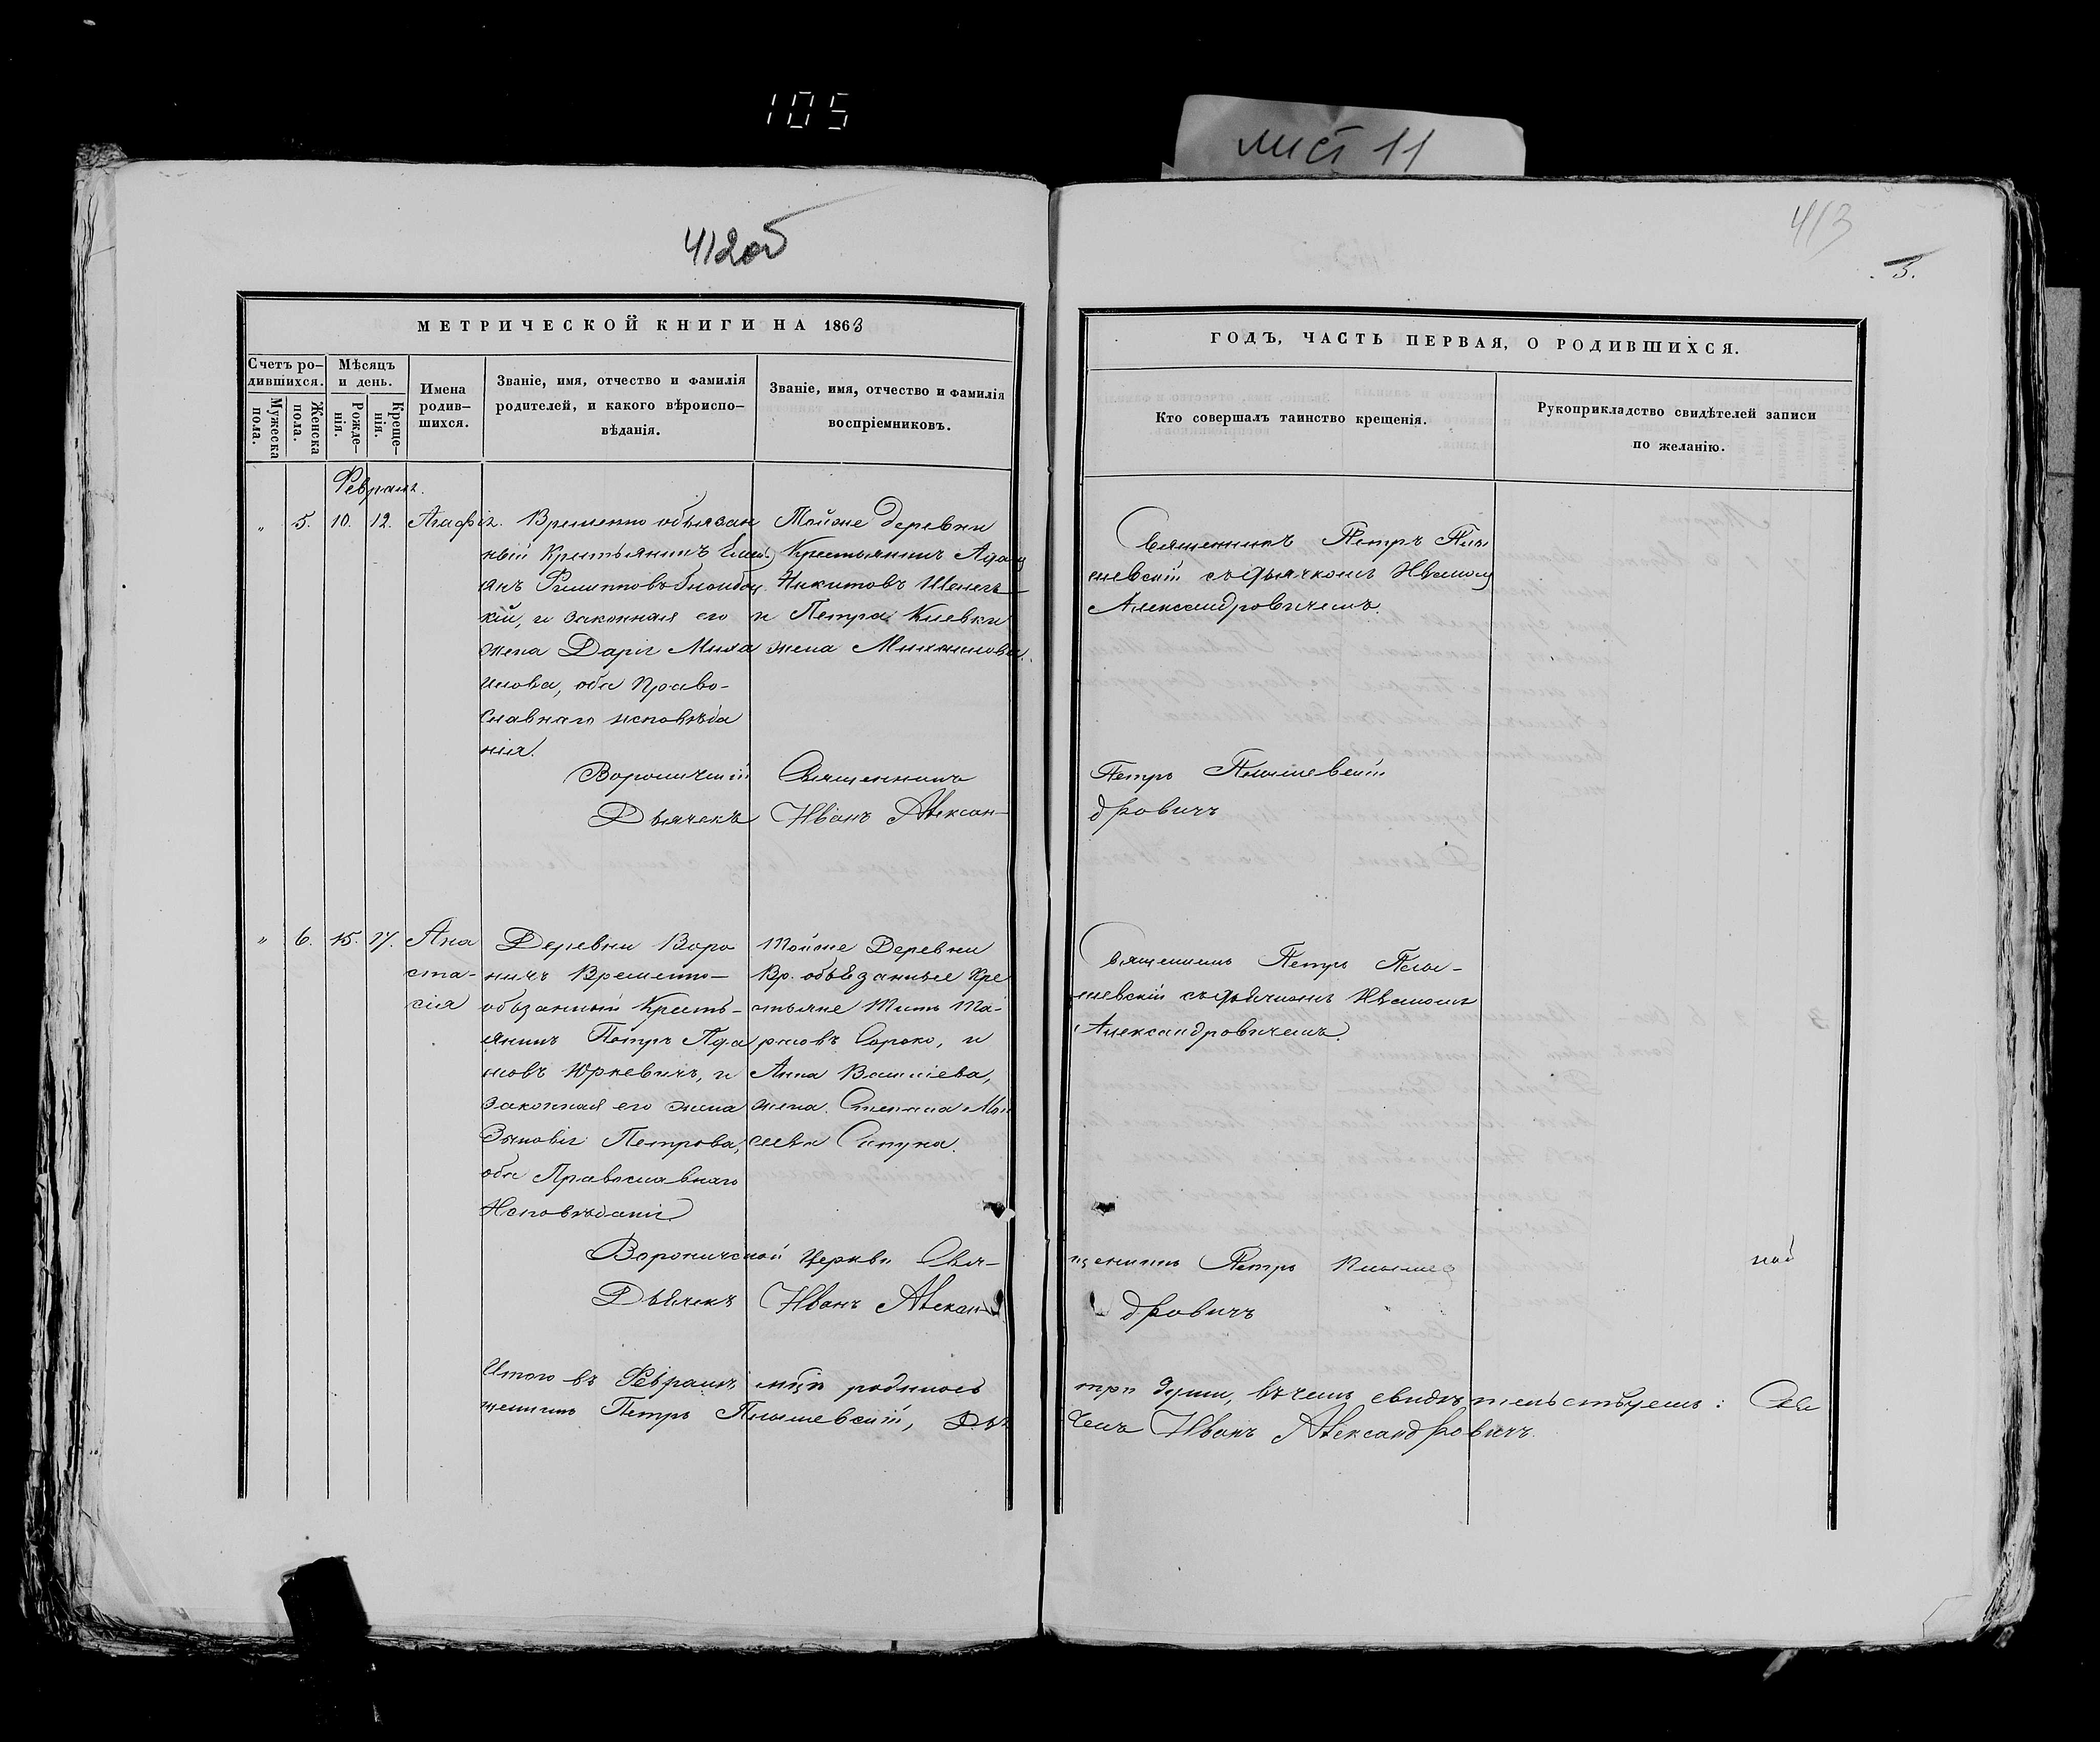 105
лист 11
412об
413
5.
МЕТРИЧЕСКОЙ КНИГИ НА 1863
ГОДЪ, ЧАСТЬ ПЕРВАЯ, О РОДИВШИХСЯ.
Счетъ ро-
дившихся.
Мужеска
пола.
Женска
пола.
Мѣсяцъ
и день.
Рожде-
нія.
Креще-
нія.
Имена
родив-
шихся.
Званіе, имя, отчество и фамилія
родителей, и какого вѣроиспо-
вѣданія.
Званіе, имя, отчество и фамилія
воспріемниковъ.
Кто совершалъ таинство крещенія.
Рукоприкладство свидѣтелей записи
по желанію.
Февраль.
„ 5. 10. 12. Агафія.
Временно обязан
ный Крестьянинъ
Филипповъ
кій, и законная его
жена Дарія Миха
илова, оба Право-
славнаго исповѣда
нія.
Тойже деревни
Крестьянинъ Адам
Никитовъ
и Петра Киевки
жена Михаилова.
Священникъ Петръ
съ дьячкомъ Иваном
Александровичемъ.
Вороничскій Священникъ Петръ
Дьячекъ Иванъ Александровичъ
„ 6. 15. 17. Ана
ста-
сія
Деревни Воро
ничъ Временно-
обязанный Кресть-
янинъ Петръ Ада
мовъ Юркевичъ, и
законная его жена
Зѣновія Петрова,
оба Православнаго
Исповѣданія.
Тойже Деревни
Вр. обязанные Кре
стьяне Титъ Та-
расовъ Сороко, и
Анна
жена Степана
Сапуна.
Священникъ Петръ
съ дьячкомъ Иваномъ
Александровичемъ.
Вороничской Церкви Свя-
щенникъ Петръ
Дьячекъ Иванъ Александровичъ
Итого въ Февралѣ мцѣ родилось три души, въ чемъ свидѣтельствуемъ: Свя
щенникъ Петръ Дьячекъ Иванъ Александровичъ.